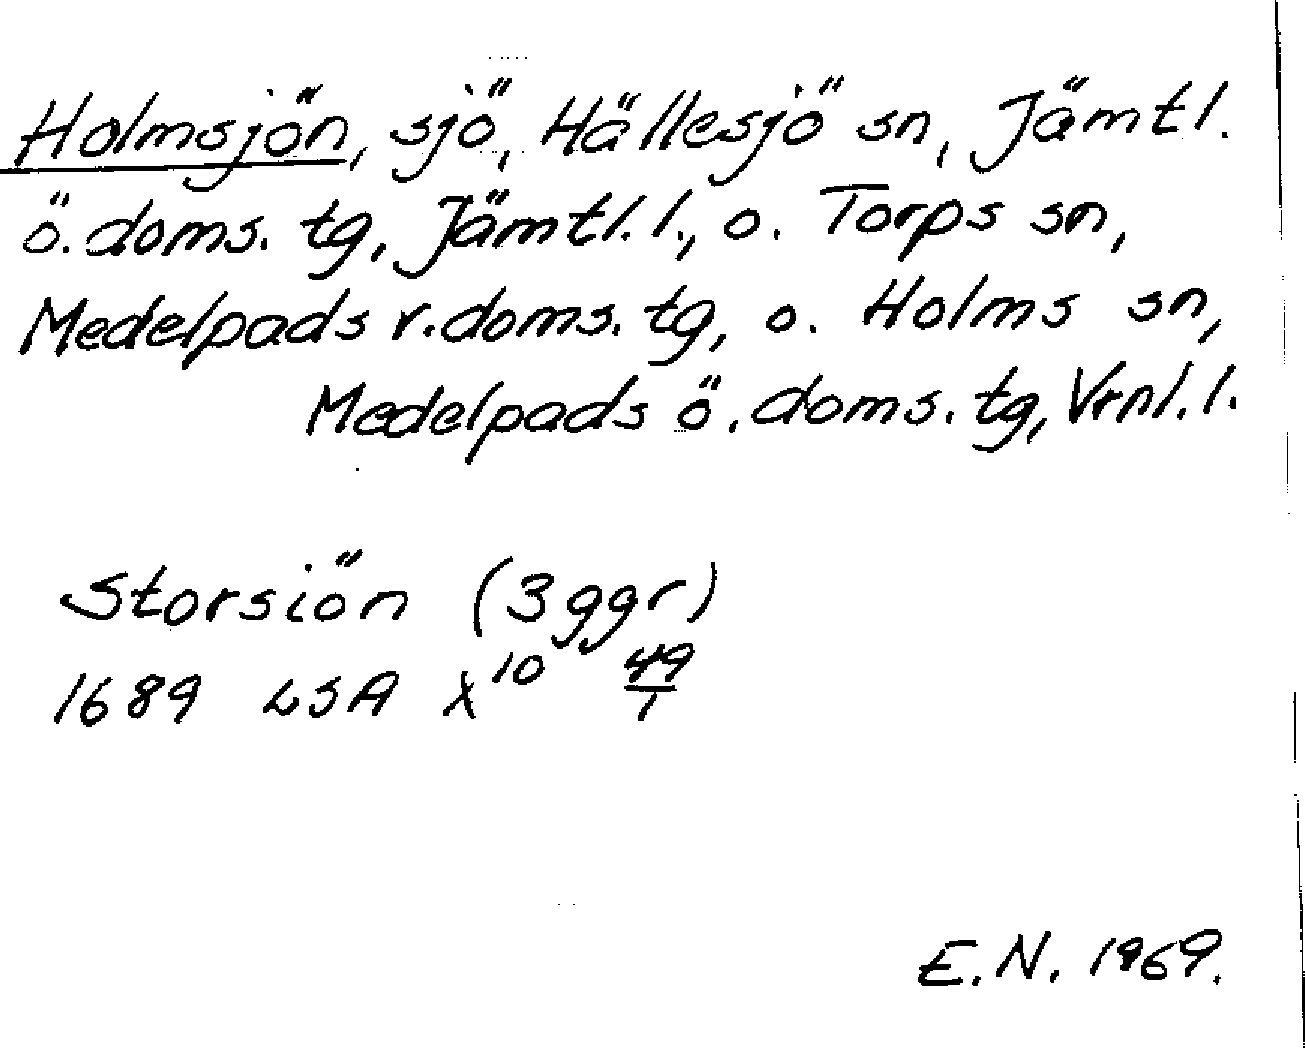 Holmsjön, sjö, Hällesjö sn, Jämtl.
ö. doms. tg, Jämtl. l., o. Torps sn,
Medelpads v. doms. tg, o. Holms sn,
Medelpads ö. doms. tg, Vrnl. l.
Storsiön (3 ggr)
1689 LSA X¹⁰ 49/1
E. N. 1969.